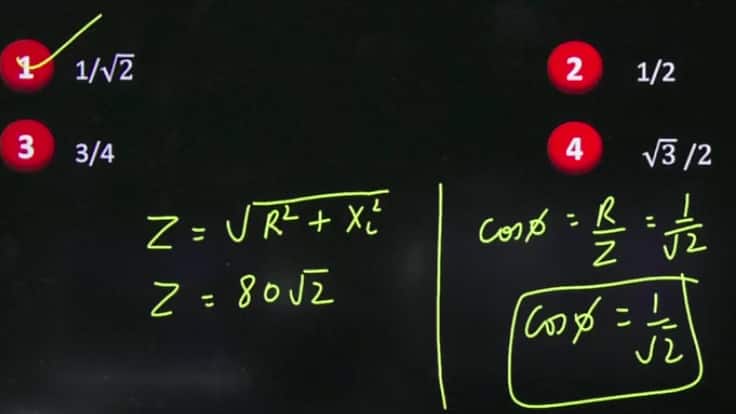 1 1/√2
2 1/2
3 3/4
4 √3 /2
Z = √R² + X_L²
Z = 80√2
cosϕ = R/Z = 1/√2
cosϕ = 1/√2